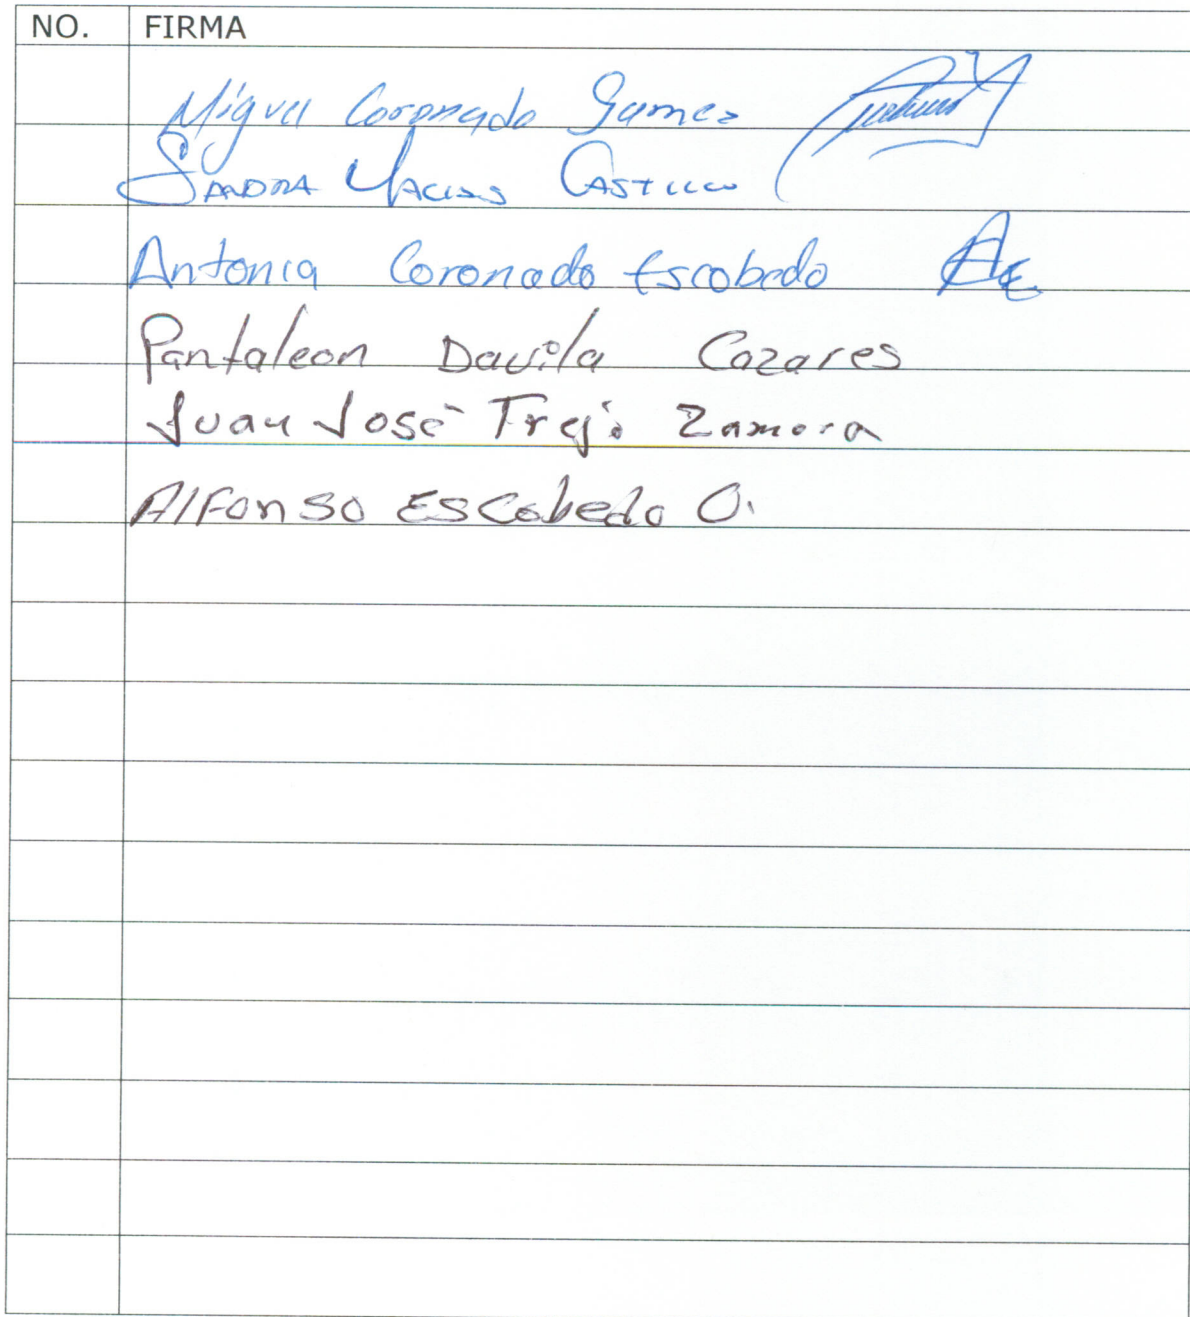 NO. FIRMA
Miguel Coronado Gamez
SANDRA MACIAS CASTILLO
Antonia Coronado Escobedo AE
Pantaleon Davila Cazares
Juan José Trejo Zamora
Alfonso Escobedo O.